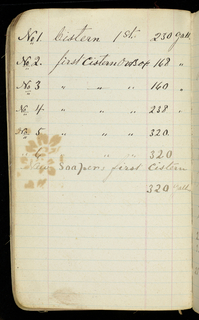 No 1 Cistern 1st. 230 Gall
No 2. first Cistern 168 "
No 3 " " " 160 "
No 4. " " " 238 "
No 5 " " " 320
6 " " 320
Soapers first Cistern
320 Gall